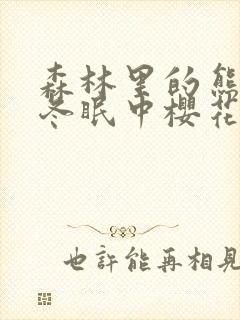 森林里的熊
冬眠中樱花
也許能再相見